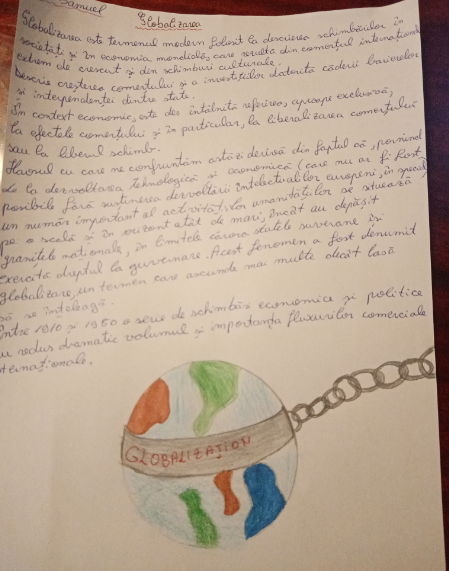 Samuel
Globalizarea
Globalizarea este termenul modern folosit la descrierea schimbărilor în
societăți și în economia mondială, care rezultă din comerțul internațional
extrem de crescut și din schimburi culturale.
Descrie creșterea comerțului și a investițiilor datorită căderii barierelor
și interpendenței dintre state.
În context economic, este des întâlnită referirea, aproape exclusivă,
la efectele comerțului și în particular, la liberalizarea comerțului
sau la liberul schimb.
Haosul cu care ne confruntăm astăzi derivă din faptul că, pornind
de la dezvoltarea tehnologică și economică (care nu ar fi fost
posibile fără susținerea dezvoltării intelectualilor europeni, în special
un număr important al activităților umanității se situează
pe o scală și în orizont atât de mari, încât au depășit
granițele naționale, în limitele cărora statele suverane își
exercită dreptul la guvernare. Acest fenomen a fost denumit
globalizare, un termen care ascunde mai multe decât lasă
să se înțeleagă.
Între 1910 și 1950 o serie de schimbări economice și politice
au redus dramatic volumul și importanța fluxurilor comerciale
GLOBALIZATION